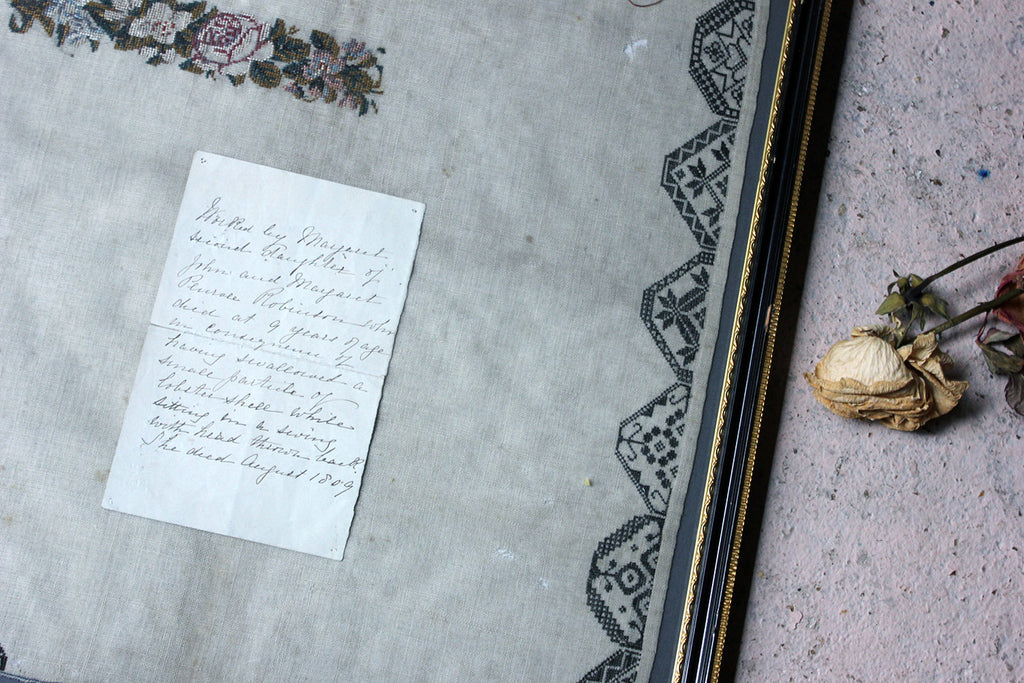 Worked by Margaret
second daughter of
John and Margaret
Penrose Robinson who
died at 9 years of age
in consequence of
having swallowed a
small particle of
lobster shell while
sitting on a swing
with head thrown back.
She died August 1809